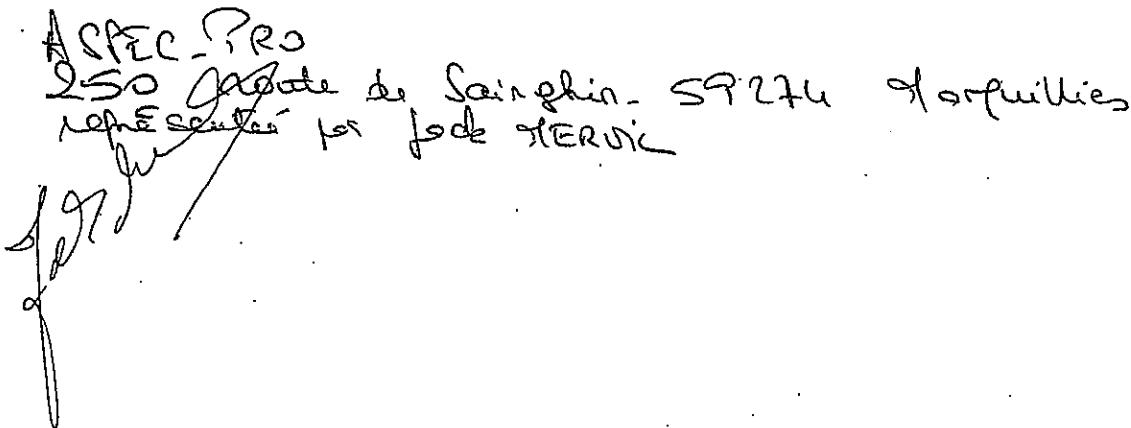 ASPEC-PRO
250 Route de Sainghin - 59274 Marquillies
représentée par Jode MERVIL